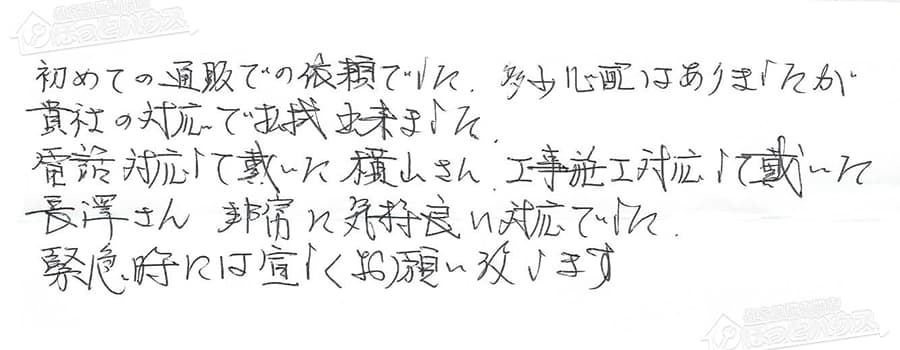 初めての通販での依頼でした. 多少心配はありましたが
貴社の対応で払拭出来ました.
電話対応して戴いた横山さん. 工事施工対応して戴いた
長澤さん 非常に気持良い対応でした.
緊急時には宣しくお願い致します
ほっとハウス
ほっとハウス